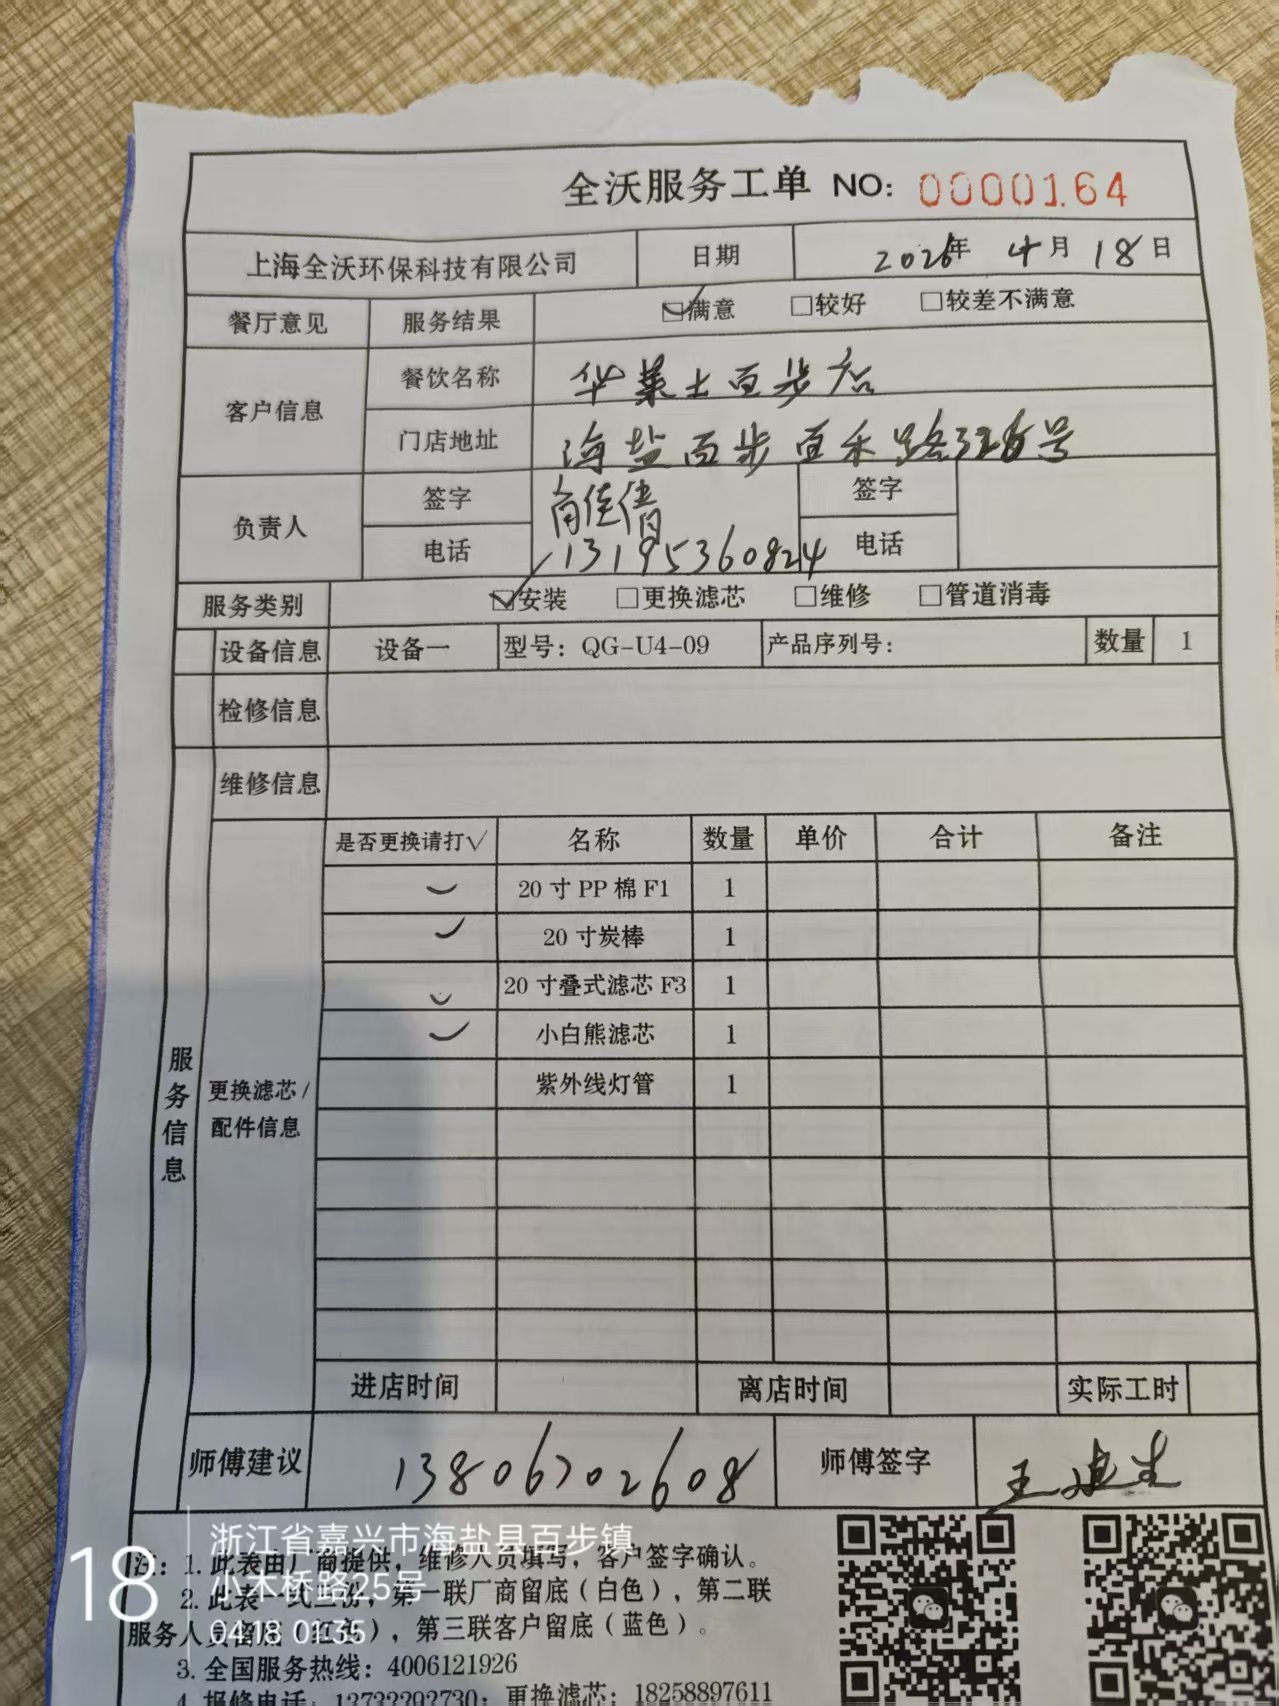 全沃服务工单 NO: 0000164
上海全沃环保科技有限公司 日期 2026年 4月 18日
餐厅意见 服务结果 ☑满意 □较好 □较差不满意
客户信息 餐饮名称 华莱士百步店
门店地址 海盐百步百禾路326号
负责人 签字 佳倩 签字
电话 13195360824 电话
服务类别 ☑安装 □更换滤芯 □维修 □管道消毒
设备信息 设备一 型号: QG-U4-09 产品序列号: 数量 1
检修信息
维修信息
服务信息
更换滤芯/
配件信息
是否更换请打√ 名称 数量 单价 合计 备注
✓ 20寸PP棉F1 1
✓ 20寸炭棒 1
✓ 20寸叠式滤芯F3 1
✓ 小白熊滤芯 1
紫外线灯管 1
进店时间 离店时间 实际工时
师傅建议 13806702608 师傅签字 王
注: 1. 此表由厂商提供, 维修人员填写, 客户签字确认。
2. 此表一式三份, 第一联厂商留底(白色), 第二联
服务人员留底(红色), 第三联客户留底(蓝色)。
3. 全国服务热线: 4006121926
4. 报修电话: 13732292730; 更换滤芯: 18258897611
18
浙江省嘉兴市海盐县百步镇
小木桥路25号
0418 01:35